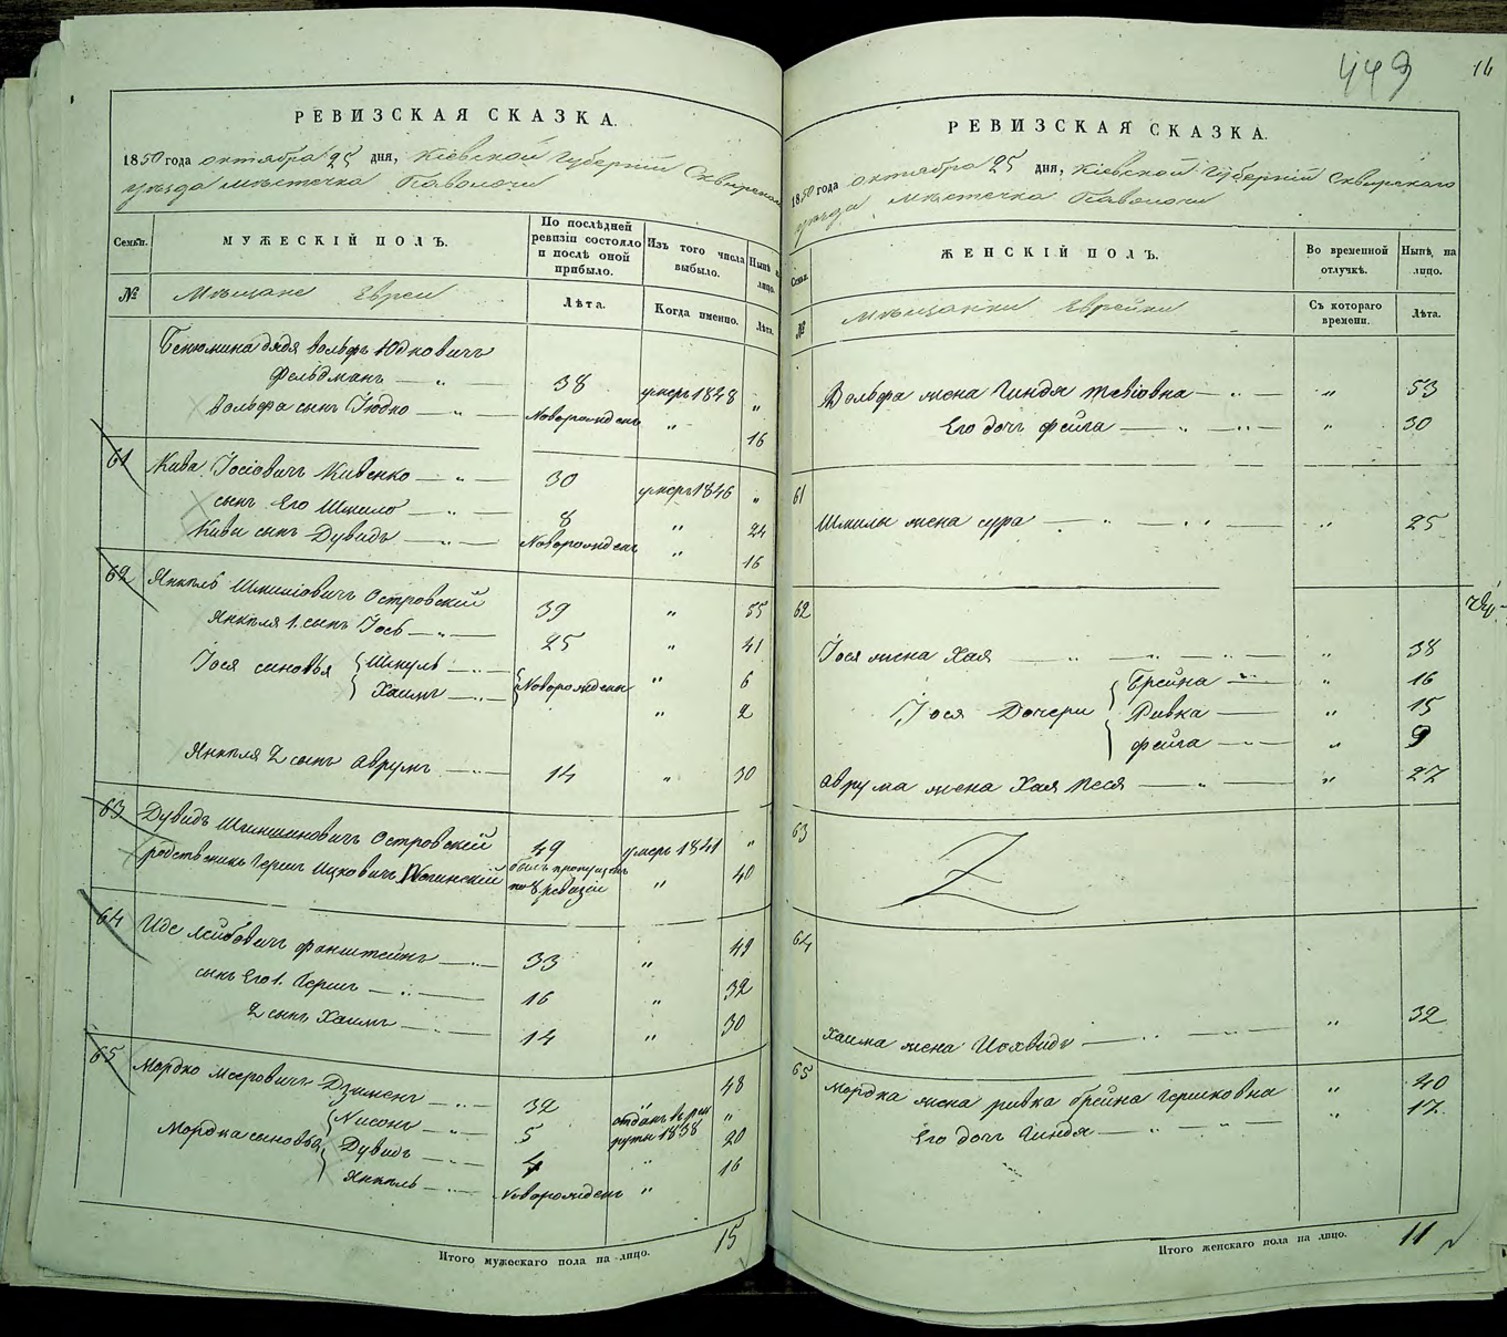 РЕВИЗСКАЯ СКАЗКА.
1850 года октября 25 дня, Кіевской Губерніи Сквирскаго
уѣзда мѣстечка Паволочи
Семьи. МУЖЕСКІЙ ПОЛЪ. По послѣдней ревизіи состояло и послѣ оной прибыло. Изъ того числа выбыло. Нынѣ на лицо.
№ Мѣщане Евреи Лѣта. Когда именно. Лѣта.
Бенюмина дядя Вольфъ Юдковичъ
Фельдманъ — „ — 38 умеръ 1848 „
Вольфа сынъ Іюдко — „ — Новорожденъ „ 16
61 Кива Іосіовичъ Кивенко — „ — 30 умеръ 1846 „
сынъ Его Шмило — „ — 8 „ 24
Киви сынъ Дувидъ — „ — Новорожденъ „ 16
62 Янкель Шмиліовичъ Островскій 39 „ 55
Янкеля 1. сынъ Іось — „ — 25 „ 41
Іося синовья { Шмуль — „ — Новорожденны „ 6
Хаимъ — „ — „ 2
Янкеля 2 сынъ Аврумъ — „ — 14 „ 30
63 Дувидъ Шимшиновичъ Островскій 49 умеръ 1841 „
родственикъ Гершъ Ицковичъ былъ пропущенъ по 8 ревизіи „ 40
64 Иде Лейбовичъ Фанштейнъ — „ — 33 „ 49
сынъ Его 1. Гершъ — „ — 16 „ 32
2 сынъ Хаимъ — „ — 14 „ 30
65 Мордко Мееровичъ — „ — 32 „ 48
Мордка сыновья { Нисонъ — „ — 5 отданъ в рекруты 1838 „
Дувидъ — „ — 4 „ 20
Янкель — „ — Новорожденъ „ 16
Итого мужескаго пола на лицо. 15
449
16
РЕВИЗСКАЯ СКАЗКА.
1850 года октября 25 дня, Кіевской Губерніи Сквирскаго
уѣзда мѣстечка Паволочи
Семьи. ЖЕНСКІЙ ПОЛЪ. Во временной отлучкѣ. Нынѣ на лицо.
№ Мѣщанки Еврейки Съ котораго времени. Лѣта.
Вольфа жена Гиндя Тевіовна — „ — „ 53
Его дочь Фейга — „ — „ — „ 30
61
Шмилы жена Сура — „ — „ — „ 25
62
Іося жена Хая — „ — „ — „ 38
Іося Дочери { Брейна — „ — „ 16
Ривка — „ 15
Фейга — „ — „ 9
Аврума жена Хая Песя — „ — „ 27
63
64
Хаима жена Иохвидъ — „ — „ — „ 32
65 Мордка жена Ривка Брейна Гершковна „ 40
Его дочь Гиндя — „ — „ — „ 17
Итого женскаго пола на лицо. 11